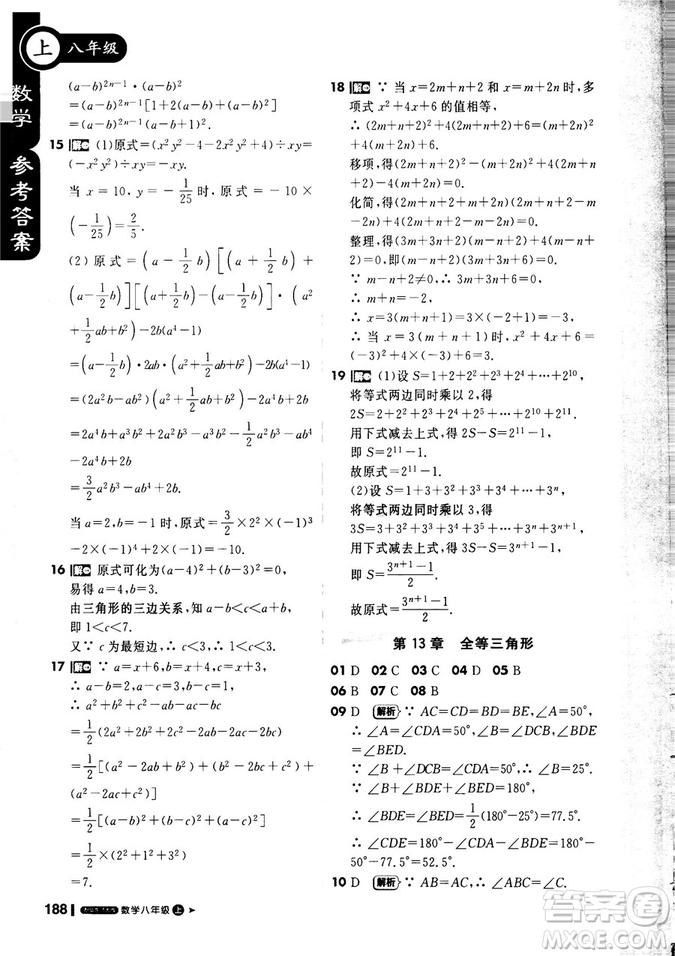 上 八年级
数学 参考答案
(a-b)²ⁿ⁻¹·(a-b)²
=(a-b)²ⁿ⁻¹[1+2(a-b)+(a-b)²]
=(a-b)²ⁿ⁻¹(a-b+1)².
15 解 (1)原式=(x²y²-4-2x²y²+4)÷xy=
(-x²y²)÷xy=-xy.
当 x=10, y=-1/25 时,原式=-10×
(-1/25)=2/5.
(2)原式=(a-1/2b)[(a+1/2b)+
(a-1/2b)][(a+1/2b)-(a-1/2b)]·(a²
+1/2ab+1/4b²)-2b(a⁴-1)
=(a-1/2b)·2ab·(a²+1/2ab+1/4b²)-2b(a⁴-1)
=(2a²b-ab²)(a²+1/2ab+1/4b²)-2a⁴b+2b
=2a⁴b+a³b²+1/2a²b³-a³b²-1/2a²b³-1/4ab⁴-
2a⁴b+2b
当 a=2, b=-1 时,原式=
16 解 原式可化为(a-4)²+(b-3)²=0,
易得 a=4,b=3.
由三角形的三边关系,知 a-b<c<a+b,
即 1<c<7.
又∵ c 为最短边,∴ c<3,∴ 1<c<3.
17 解 ∵ a=x+6,b=x+4,c=x+5,
∴ a-b=2,a-c=1,b-c=-1.
∴ a²+b²+c²-ab-ac-bc
=1/2(2a²+2b²+2c²-2ab-2ac-2bc)
=1/2[(a²-2ab+b²)+(b²-2bc+c²)+
(a²-2ac+c²)]
=1/2[(a-b)²+(b-c)²+(a-c)²]
=1/2×(2²+1²+1²)
188 数学八年级 上
18 解 ∵ 当 x=2m+n+2 和 x=m+2n 时,多
项式 x²+4x+6 的值相等,
移项,得(2m+n+2)²-(m+2n)²+4(2m+n+2)-4(m+2n)=0.
∵ m-n+2≠0,∴ 3m+3n+6=0,
∴ m+n=-2.
∴ x=3(m+n+1)=3×(-2+1)=-3.
∴ 当 x=3(m+n+1)时,x²+4x+6=
(-3)²+4×(-3)+6=3.
19 解 (1)设 S=1+2+2²+2³+2⁴+…+2¹⁰,
将等式两边同时乘以 2,得
2S=2+2²+2³+2⁴+…+2¹¹,
用下式减去上式,得 2S-S=2¹¹-1,
即 S=2¹¹-1.
故原式=2¹¹-1.
(2)设 S=1+3+3²+3³+3⁴+…+3ⁿ,
将等式两边同时乘以 3,得
3S=3+3²+3³+3⁴+…+3ⁿ⁺¹,
用下式减去上式,得 3S-S=3ⁿ⁺¹-1,
即 S=(3ⁿ⁺¹-1)/2.
故原式=(3ⁿ⁺¹-1)/2.
第 13 章 全等三角形
01 D 02 C 03 C 04 D 05 B
06 B 07 C 08 B
09 D 解析 ∵ AC=CD=BD=BE,∠A=50°,
∴ ∠A=∠CDA=50°,∠B=∠DCB,∠BDE
=∠BED.
∵ ∠B+∠DCB=∠CDA=50°,∴ ∠B=25°.
∵ ∠B+∠BDE+∠BED=180°,
∴ ∠BDE=∠BED=1/2(180°-25°)=77.5°.
∴ ∠CDE=180°-∠CDA-∠BDE=180°-
50°-77.5°=52.5°.
10 D 解析 ∵ AB=AC,∴ ∠ABC=∠ACB.
答案圈
MXQE.COM